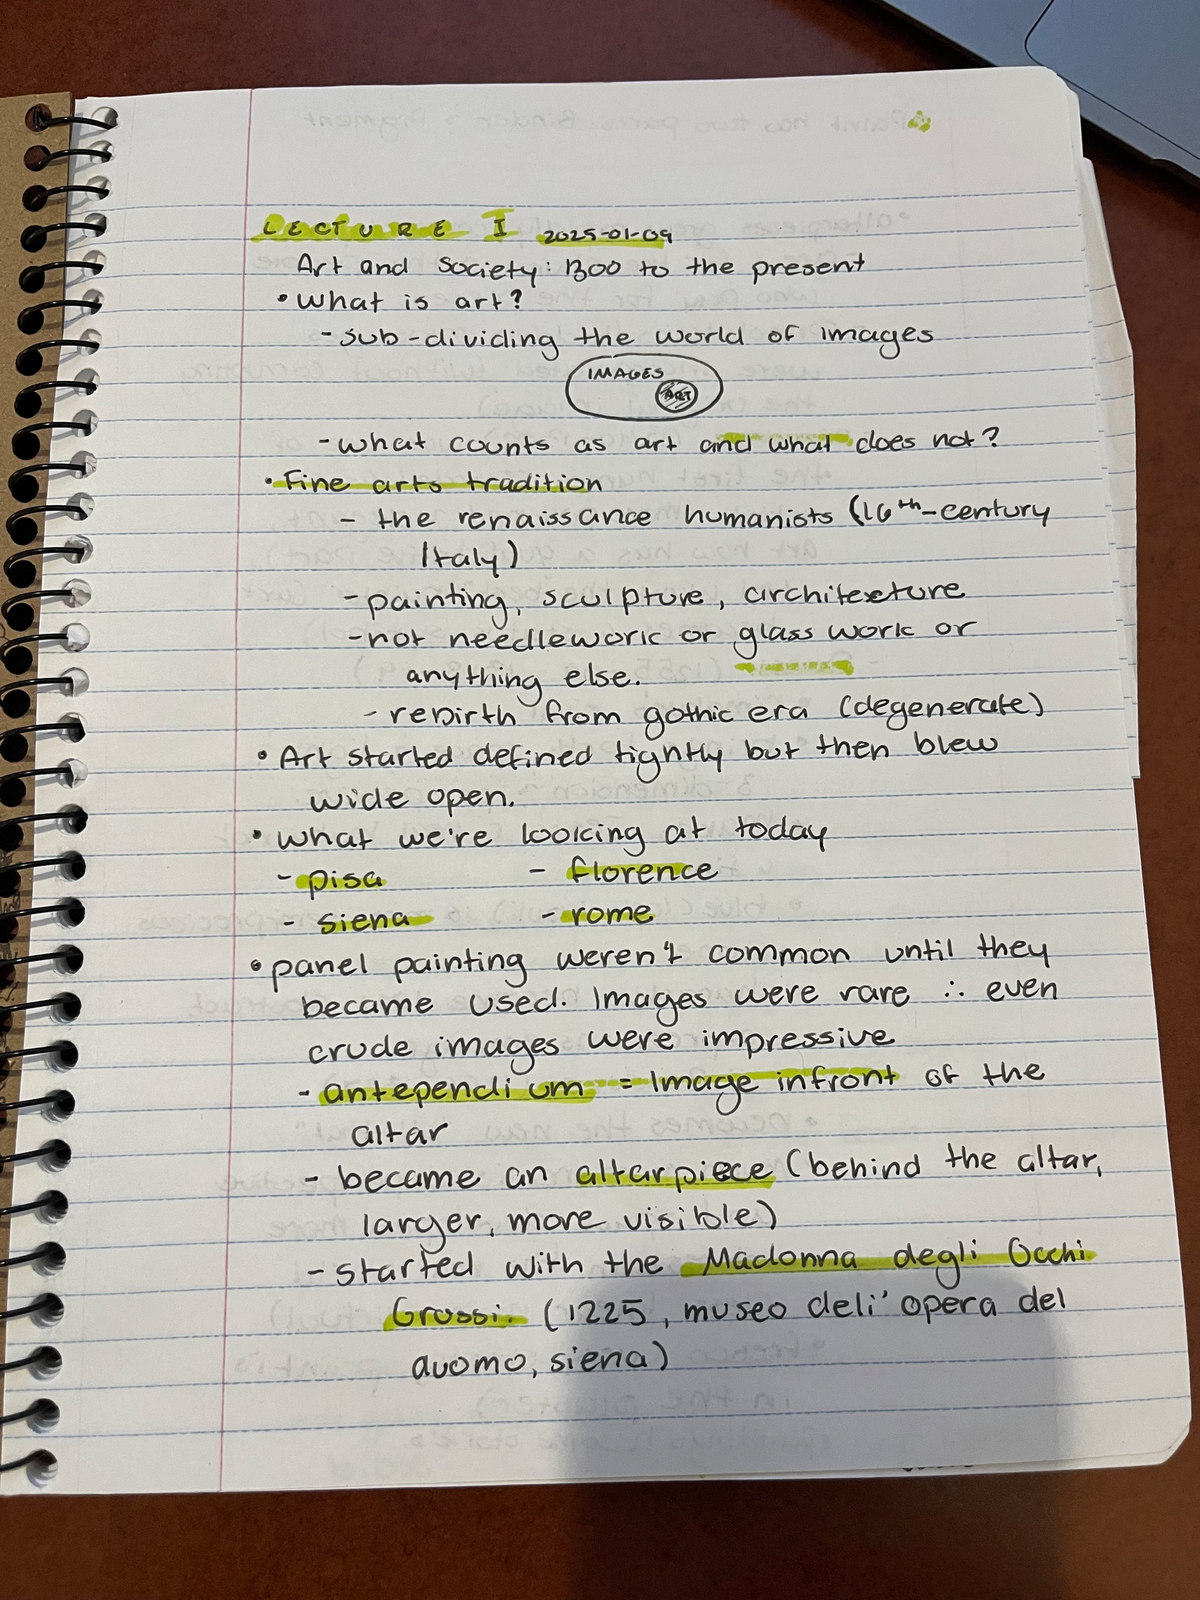 LECTURE I 2025-01-09
Art and Society: 1300 to the present
• What is art?
- sub-dividing the world of images
IMAGES
ART
- what counts as art and what does not?
• Fine arts tradition
- the renaissance humanists (16th-century
Italy)
- painting, sculpture, architexture
- not needlework or glass work or
anything else.
- rebirth from gothic era (degenerate)
• Art started defined tightly but then blew
wide open.
• what we're looking at today
- pisa - florence
- siena - rome
• panel painting weren't common until they
became used. Images were rare ∴ even
crude images were impressive
- antependium = Image infront of the
altar
- became an altarpiece (behind the altar,
larger, more visible)
- started with the Madonna degli Occhi
Grossi. (1225, museo deli' opera del
duomo, siena)